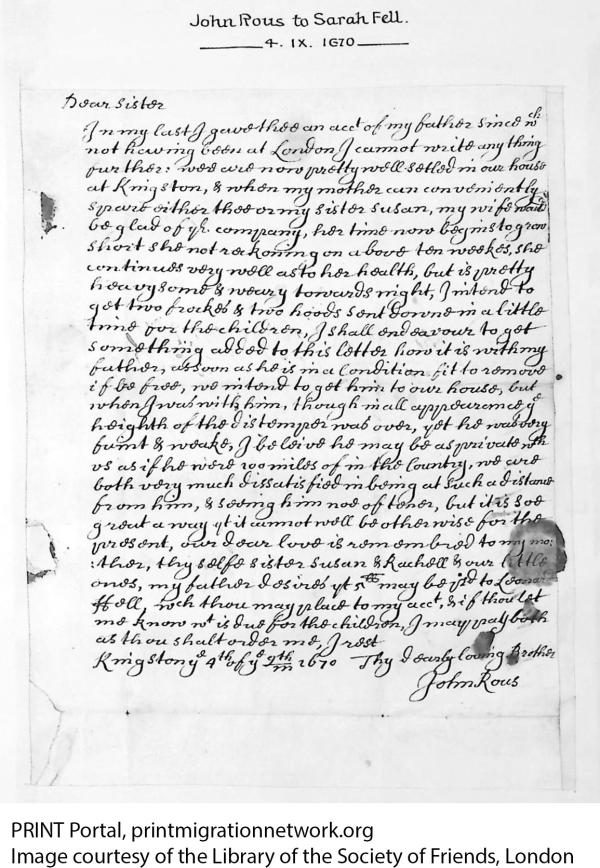 John Rous to Sarah Fell.
4. IX. 1670
Dear Sister
In my last I gave thee an acct of my father since wch
not having been at London I cannot write any thing
further: wee are now pretty well setled in our house
at Kingston, & when my mother can conveniently
spare either thee or my sister Susan, my wife would
be glad of yr. company, her time now begins to grow
short she not reckoning on above ten weekes, she
continues very well as to her health, but is pretty
heavysome & weary towards night, I intend to
get two frockes & two hoods sent downe in a little
time for the children, I shall endeavour to get
something added to this letter how it is with my
father, as soon as he is in a Condition fit to remove
if be free, we intend to get him to our house, but
when I was with him, though in all appearance ye
heighth of the distemper was over, yet he was very
faint & weake, I beleive he may be as private with
us as if he were 100 miles of in the Country, we are
both very much dissatisfied in being at such a distance
from him, & seeing him noe oftener, but it is soe
great a way yt it cannot well be otherwise for the
present, our dear love is remembred to my mo:
:ther, thy selfe sister Susan & Rachell & our little
ones, my father desires yt 5lb may be pd to Leonard
ffell, wch thou may place to my acct, & if thou let
me know wt is due for the children, I may pay both
as thou shalt order me, I rest
Kingston ye 4th of ye 9th/m 1670 Thy dearly loving Brother
John Rous
PRINT Portal, printmigrationnetwork.org
Image courtesy of the Library of the Society of Friends, London